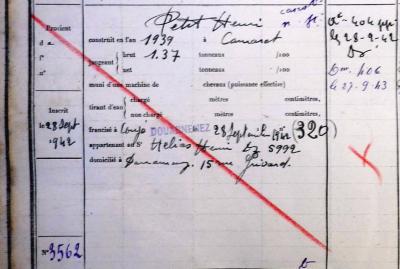 Petit Henri
canot
n. p.
Provient
construit en l'an 1939 à Camaret
d
f°
n°
jaugeant
brut 1.37 tonneaux /100
net tonneaux /100
muni d'une machine de chevaux (puissance effective)
tirant d'eau
chargé mètres centimètres,
non chargé mètres centimètres,
Inscrit
le 28 Sept
1942
francisé à DOUARNENEZ 28 Sept 1942 (320)
appartenant au Sr Hélias Henri Dz 5992
domicilié à Douarnenez, 15 rue
N° 3562
404
le 28-9-42
Dz
406
le 27-9-43